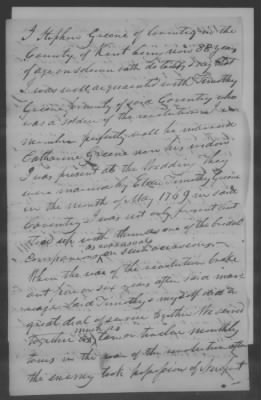 I Stephen Greene of Coventry in the
County of Kent being now 88 years
of age on solemn oath do testify & say that
I was well acquainted with Timothy
Greene formerly of said Coventry who
was a soldier of the revolution & I re
member perfectly well he married
Catharine Greene now his widow
I was present at the Wedding They
were married by Elder Timothy Greene
in the month of May 1769 in said
Coventry I was not only present but
with them as one of the bridal
Companions as was usual on such occasions
When the war of the revolution broke
out five or six years after said mar-
riage Said Timothy & myself did a
great deal of service together We served
together as much as ten or twelve monthly
tours in the war of the revolution after
the enemy took possession of Newport